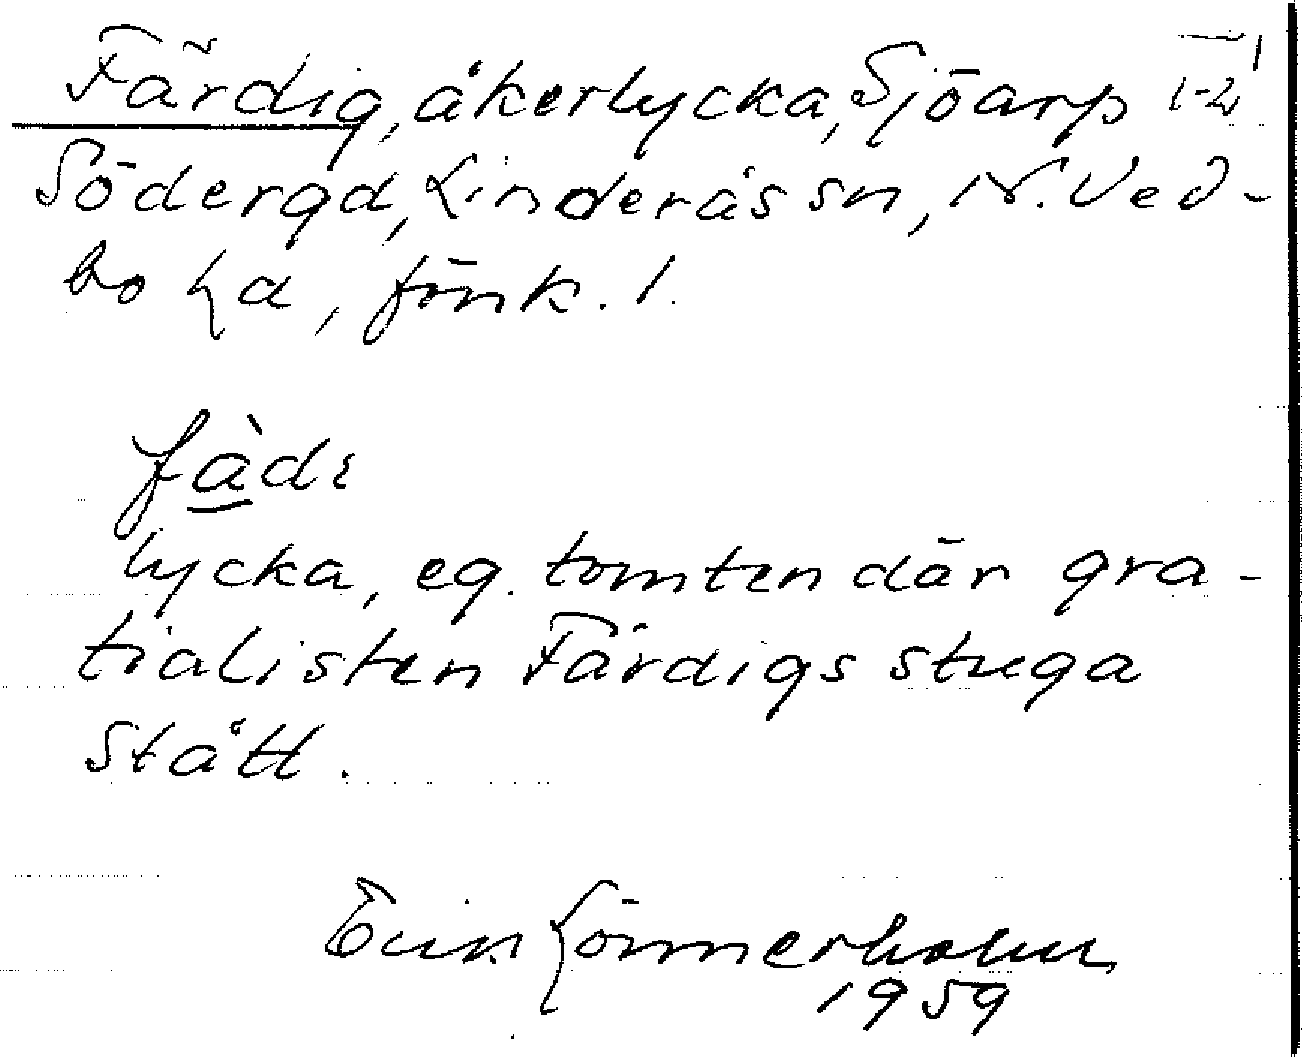 Färdig, åkerlycka, Sjöarp 1-2¹
Södergd, Linderås sn, N. Ved-
bo hd, Jönk. l.
fàdɩ
lycka, eg. tomten där gra-
tialisten Färdigs stuga
stått.
Lönnerholm
1959